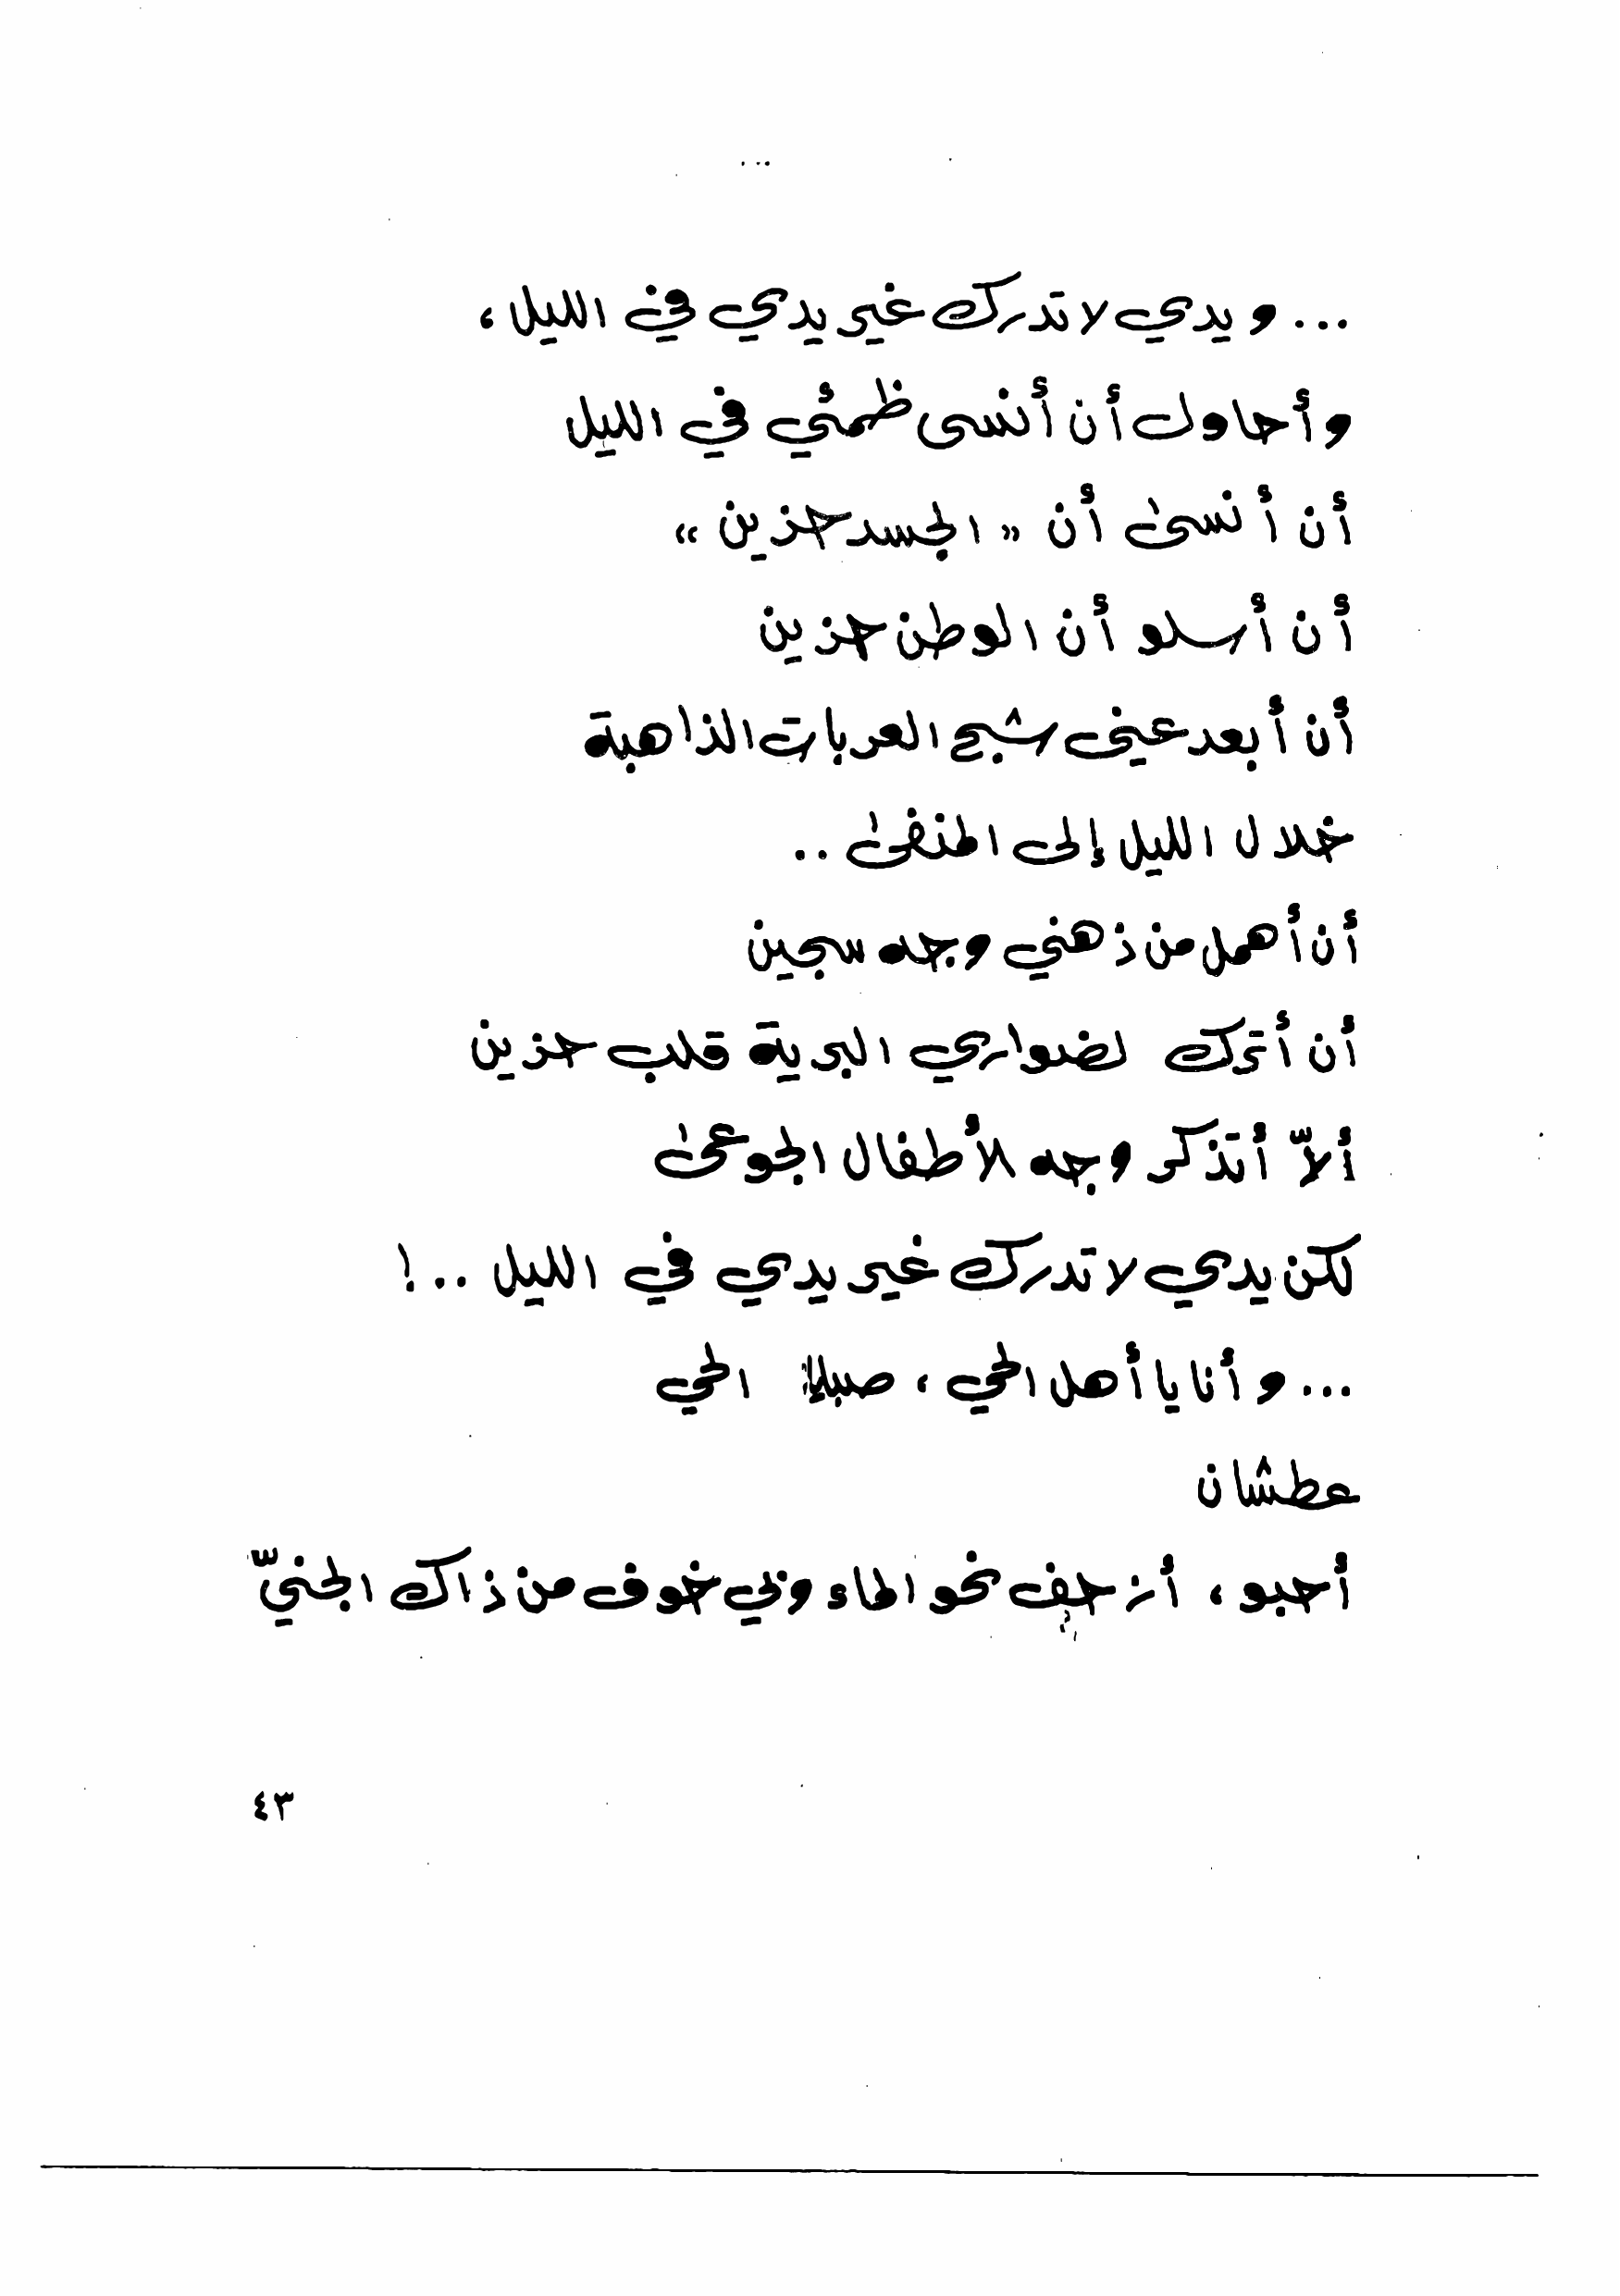 ... ويدي لا تدرك غير يدي في الليل،
وأحاول أن أنسى ظمئي في الليل
أن أنسى أن «الجسد حزين»
أن أسلو أن الوطن حزين
أن أبعد عني شبح العربات الذاهبة
خلال الليل إلى المنفى ..
أن أهمل من ذهني وجه سجين
أن أترك لضواري البرية قلب حزين
ألاّ أتذكر وجه الأطفال الجوعى
لكن يدي لا تدرك غير يدي في الليل ..!
... وأنا يا أهل الحي، الحي
عطشان
أحبو، أزحف نحو الماء وبي خوف من ذاك الجنيّ
٤٣